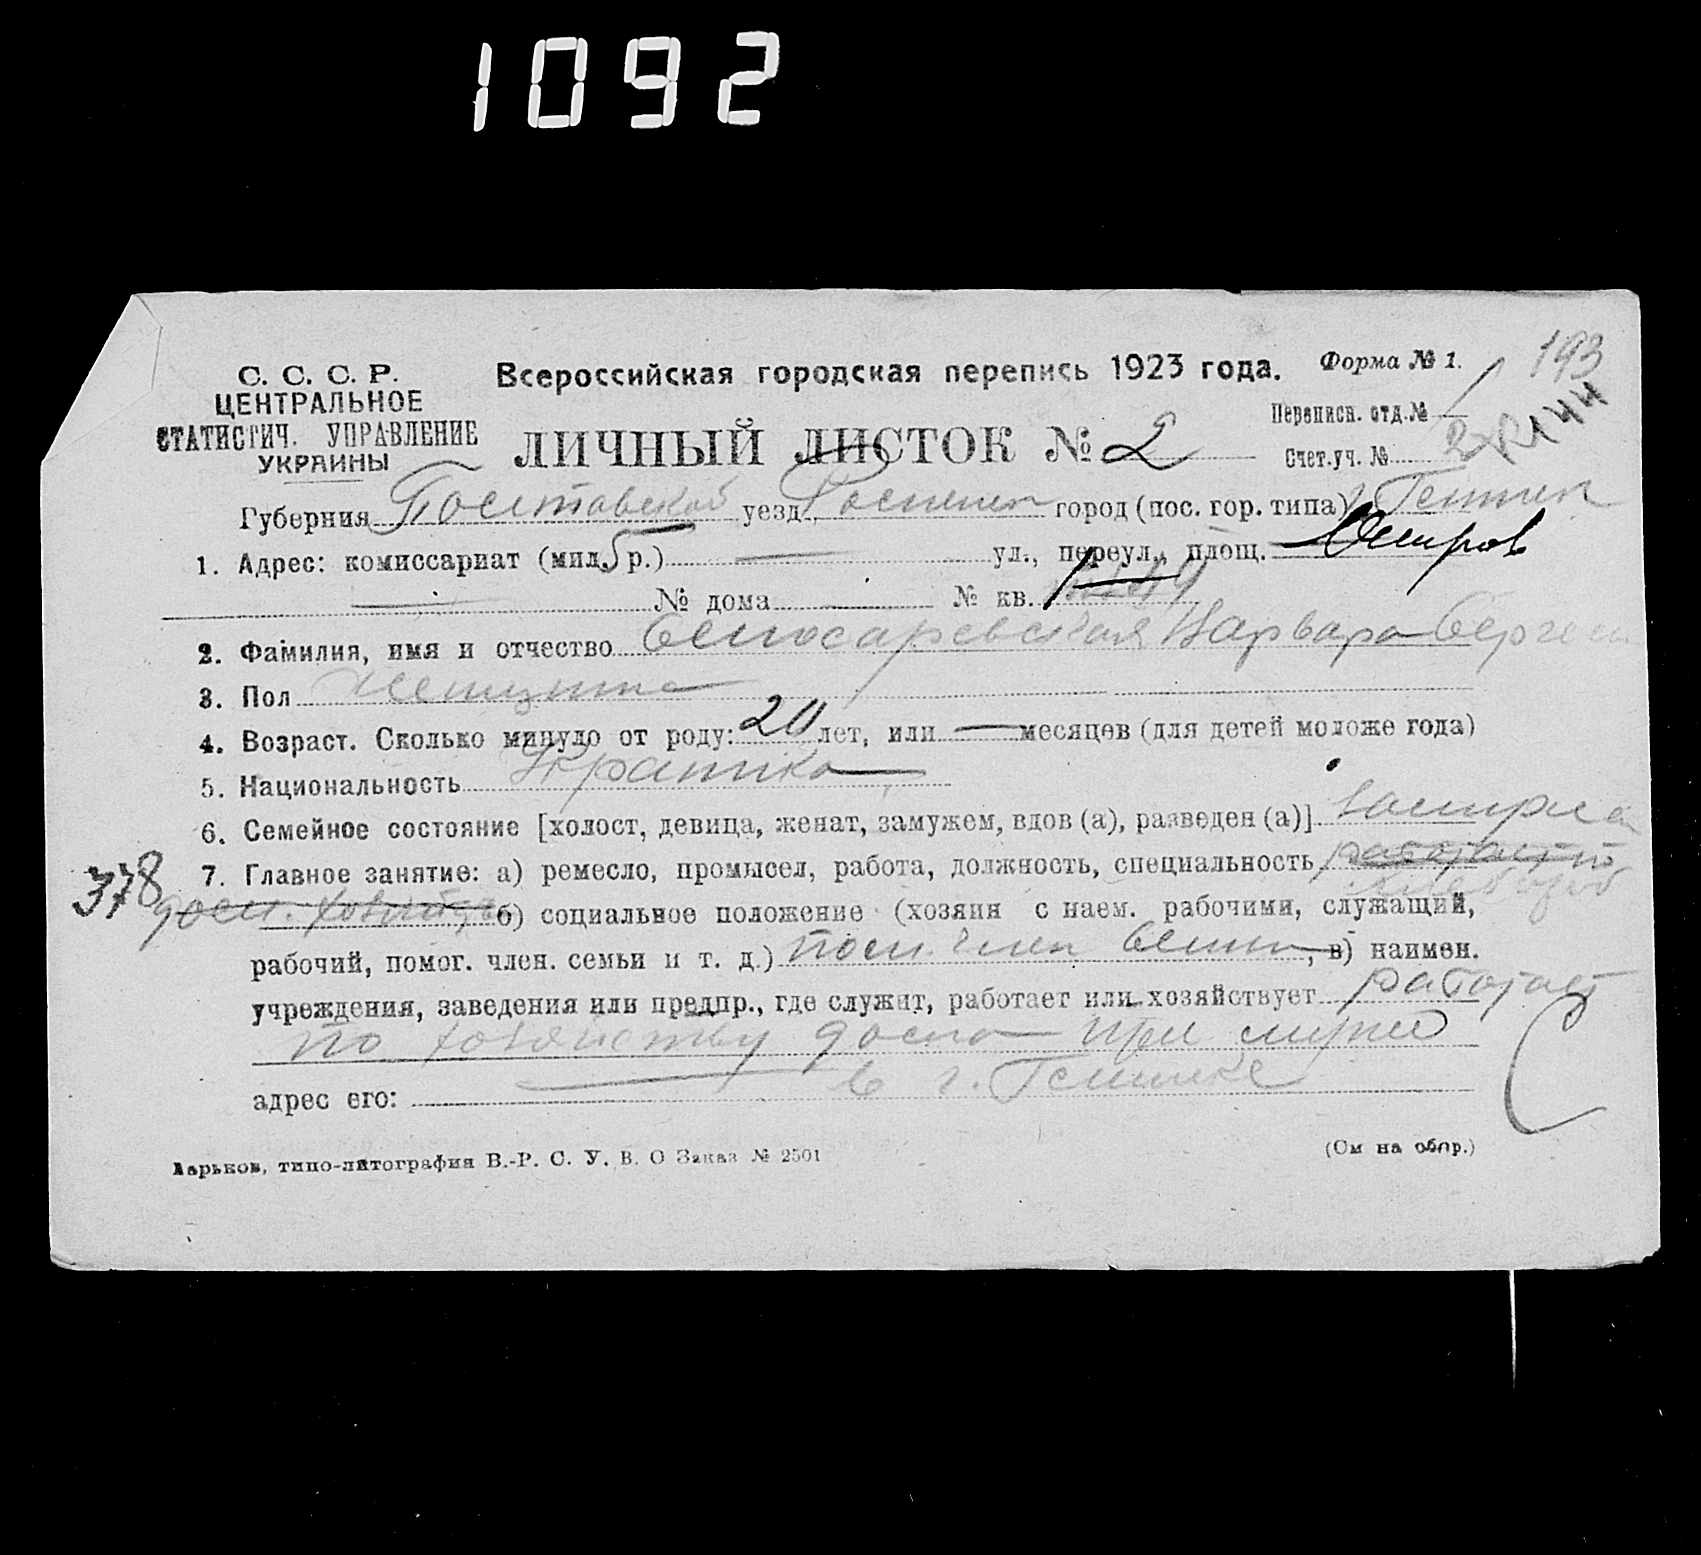 1092
С. С. С. Р.
ЦЕНТРАЛЬНОЕ
СТАТИСТИЧ. УПРАВЛЕНИЕ
УКРАИНЫ
Всероссийская городская перепись 1923 года.
Форма № 1.
193
ЛИЧНЫЙ ЛИСТОК № 2
Переписн. отд. №
Счет. уч. №
144
Губерния Полтавской уезд город (пос. гор. типа)
1. Адрес: комиссариат (мил. 5 р.) — ул., переул., площ.
— № дома — № кв.
2. Фамилия, имя и отчество Варвара
3. Пол Женщина
4. Возраст. Сколько минуло от роду: 20 лет, или — месяцев (для детей моложе года)
5. Национальность Украинка
6. Семейное состояние [холост, девица, женат, замужем, вдов (а), разведен (а)]
378
7. Главное занятие: а) ремесло, промысел, работа, должность, специальность
б) социальное положение (хозяин с наем. рабочими, служащий,
рабочий, помог. член. семьи и т. д.) член , в) наимен.
учреждения, заведения или предпр., где служит, работает или хозяйствует работает
по хозяйству дома при муже
в г.
адрес его:
Харьков, типо-литография В.-Р. С. У. В. О Заказ № 2501
(См на обор.)